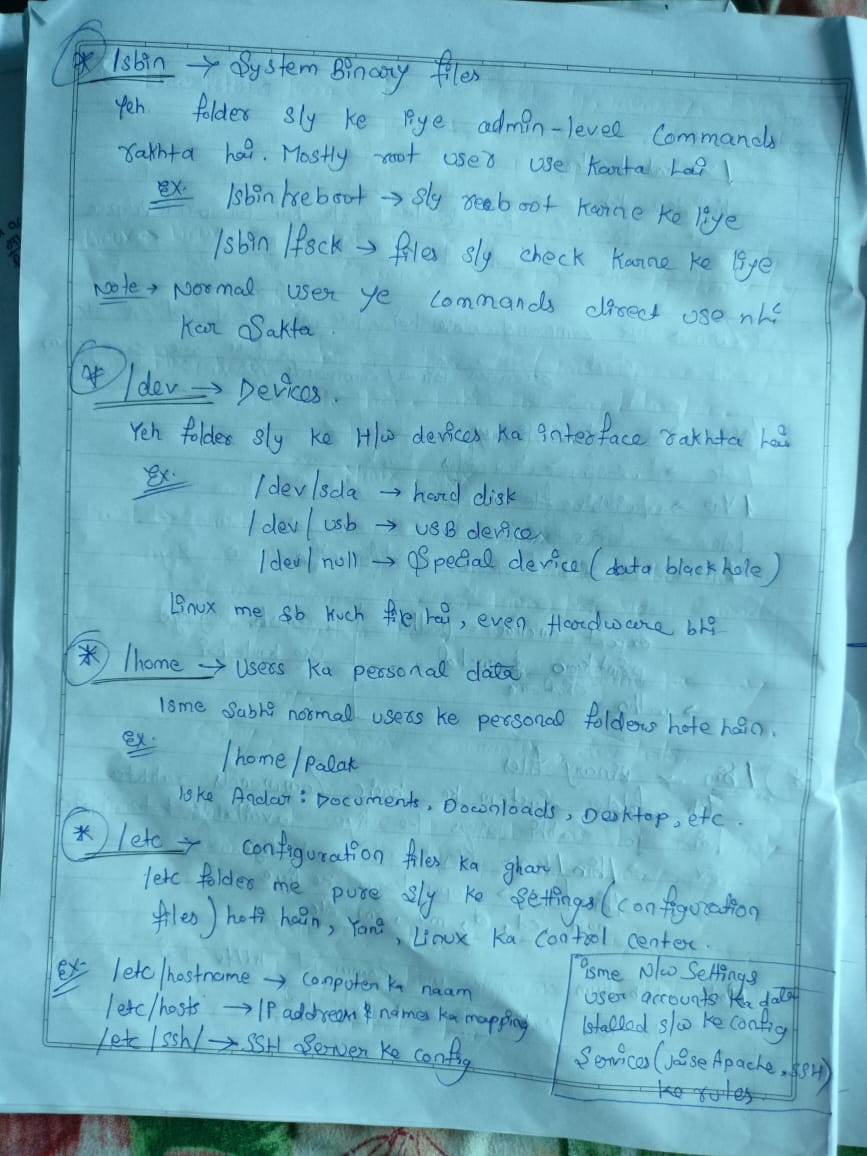 * /sbin → System Binary files
Yeh folder s/y ke liye admin-level Commands
rakhta hai. Mostly root user use karta hai |
Ex. /sbin/reboot → s/y reeboot karne ke liye
/sbin/fsck → files s/y check karne ke liye
Note → Normal user ye commands direct use nhi
kar Sakta.
* /dev → Devices.
Yeh folder s/y ke H/w devices ka interface rakhta hai
Ex. /dev/sda → hard disk
/dev/usb → USB device
/dev/null → Special device (data black hole)
Linux me sb kuch file hai, even Hardware bhi
* /home → Users ka personal data
Isme Sabhi normal users ke personal folders hote hain.
Ex. /home/palak
Iske Andar : Documents, Downloads, Desktop, etc.
* /etc → Configuration files ka ghar
/etc folder me pure s/y ke Settings (configuration
files) hoti hain, Yani, Linux ka Control center.
Ex- /etc/hostname → Conputer ka naam
/etc/hosts → IP address & names ka mapping
/etc/ssh/ → SSH Server ke config
isme N/w Settings
User accounts ka data
Istalled s/w ke config
Services (jaise Apache, SSH)
ke rules.